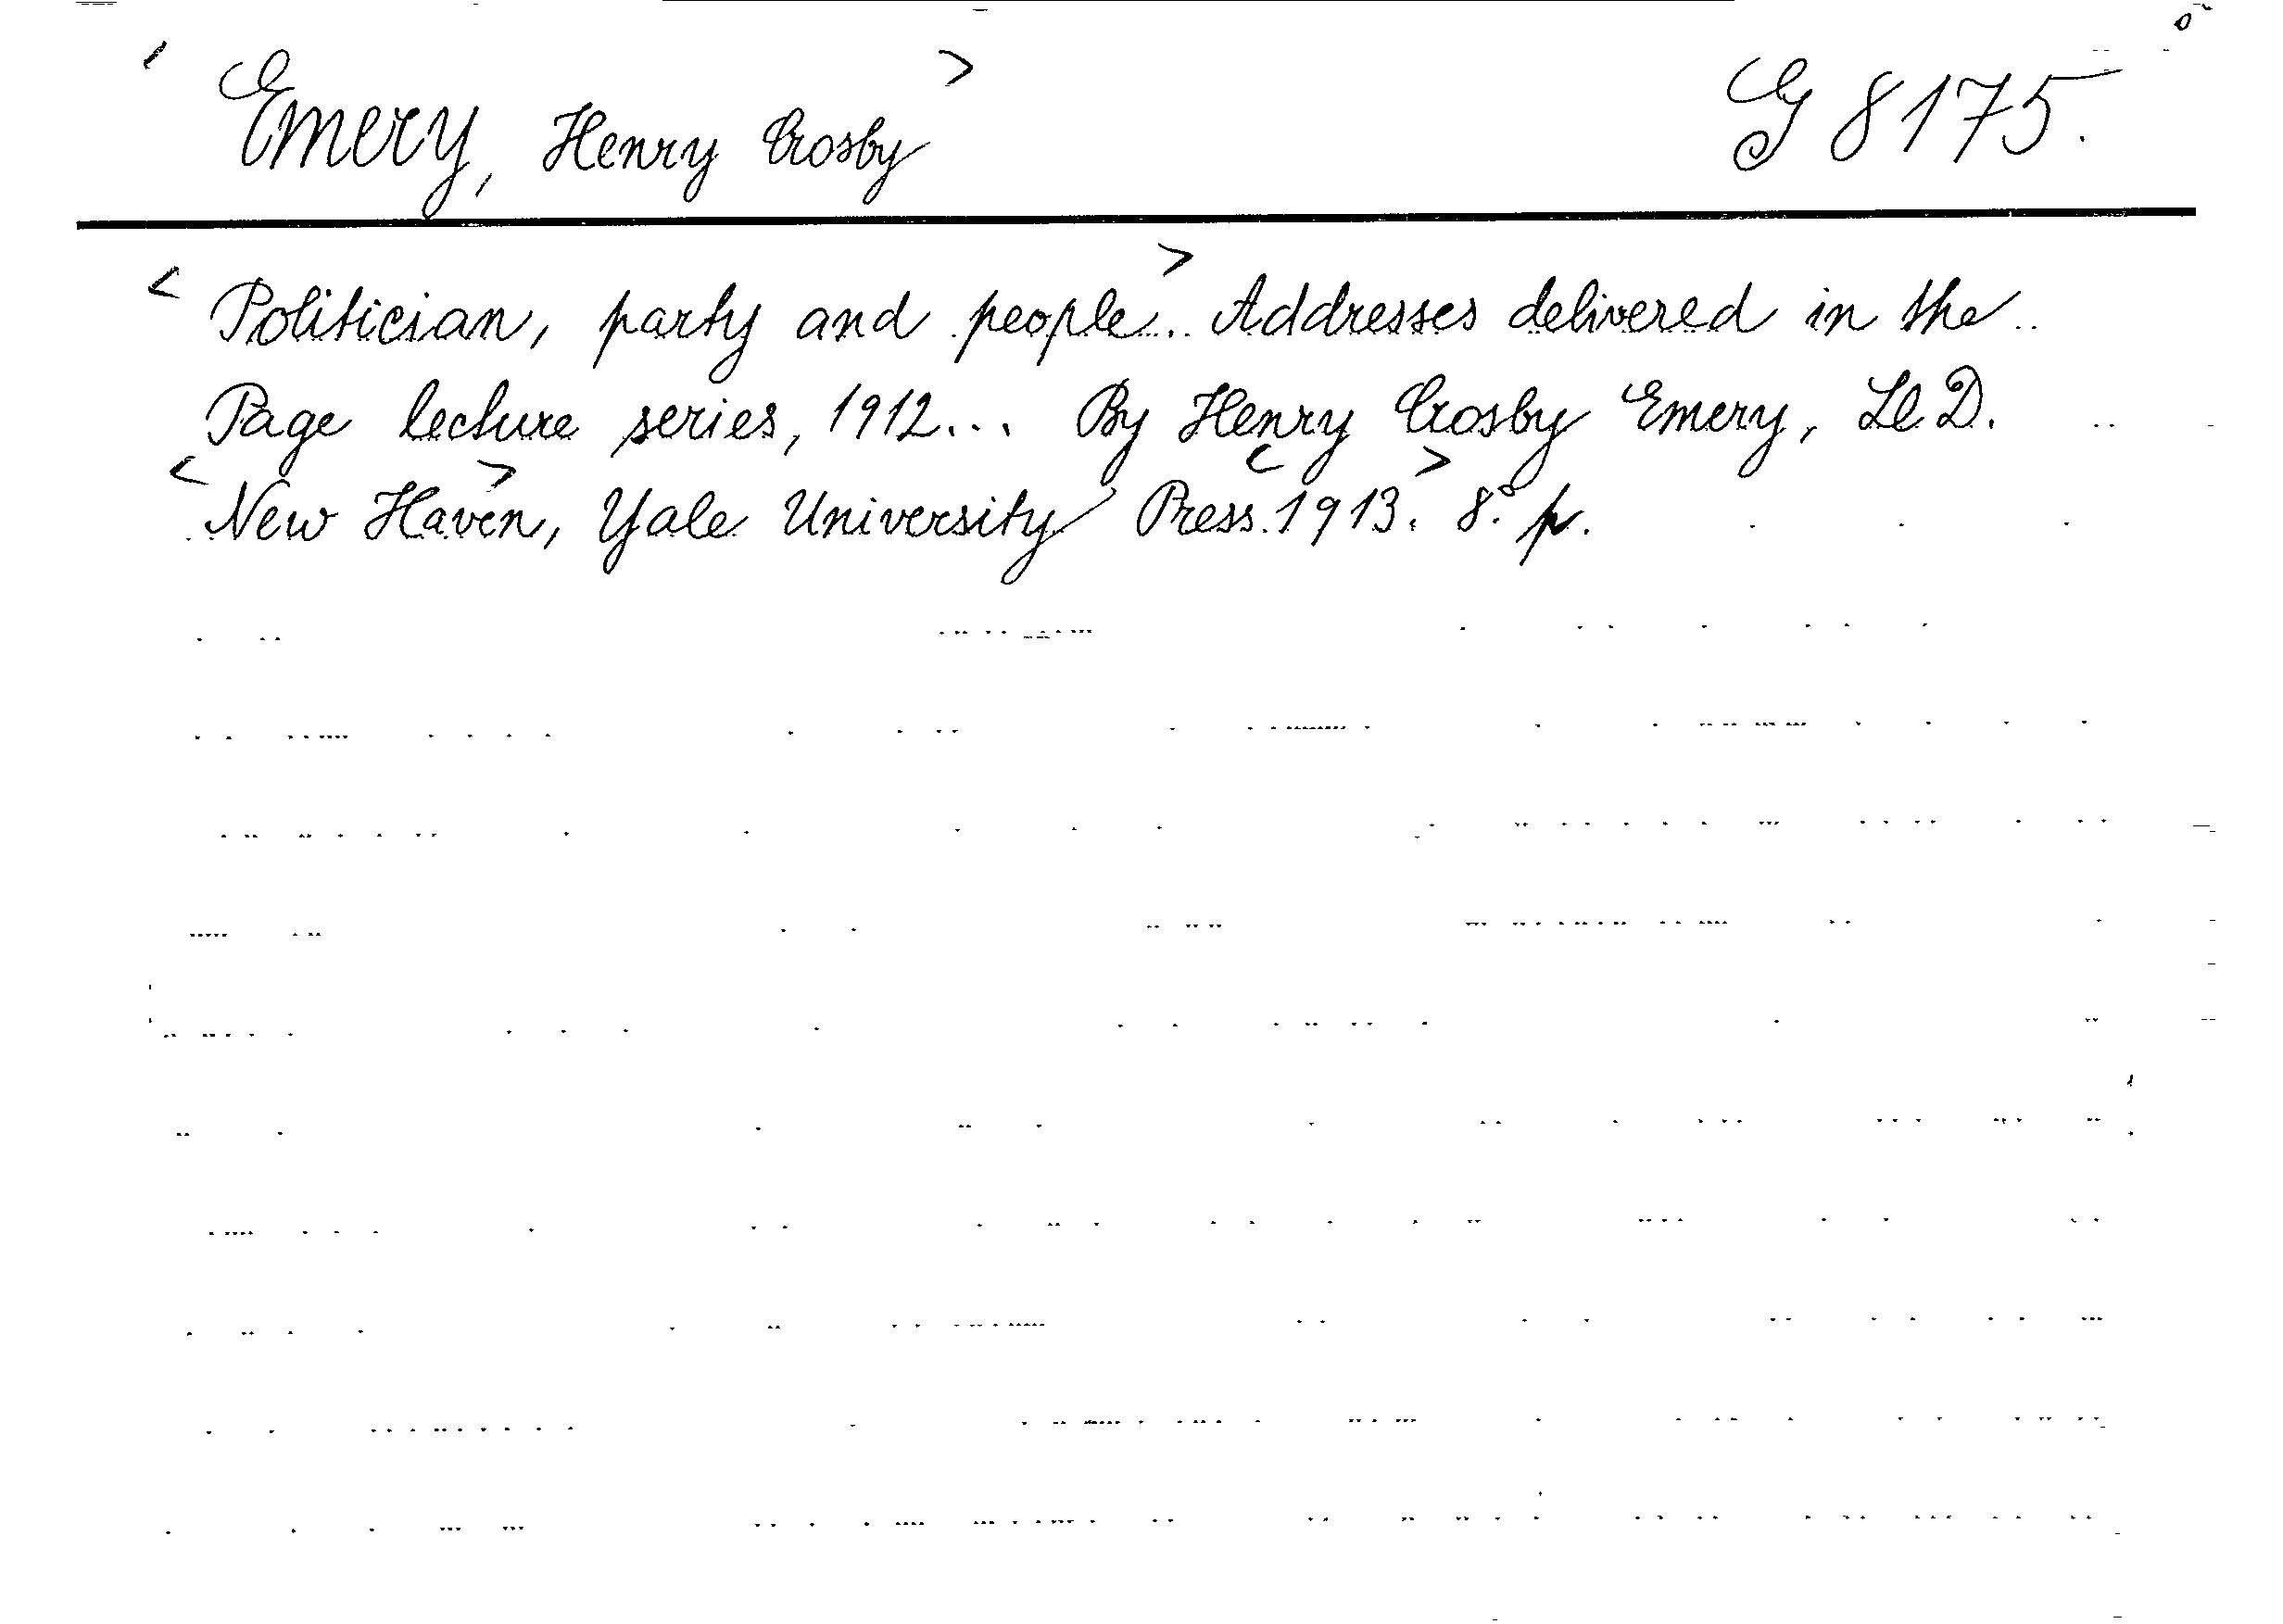 <Emery, Henry Crosby> G 8175.
<Politician, party and people>. Addresses delivered in the
Page lecture series, 1912... By Henry Crosby Emery, Ll. D.
<New Haven>, Yale University Press. <1913.> 8° p.